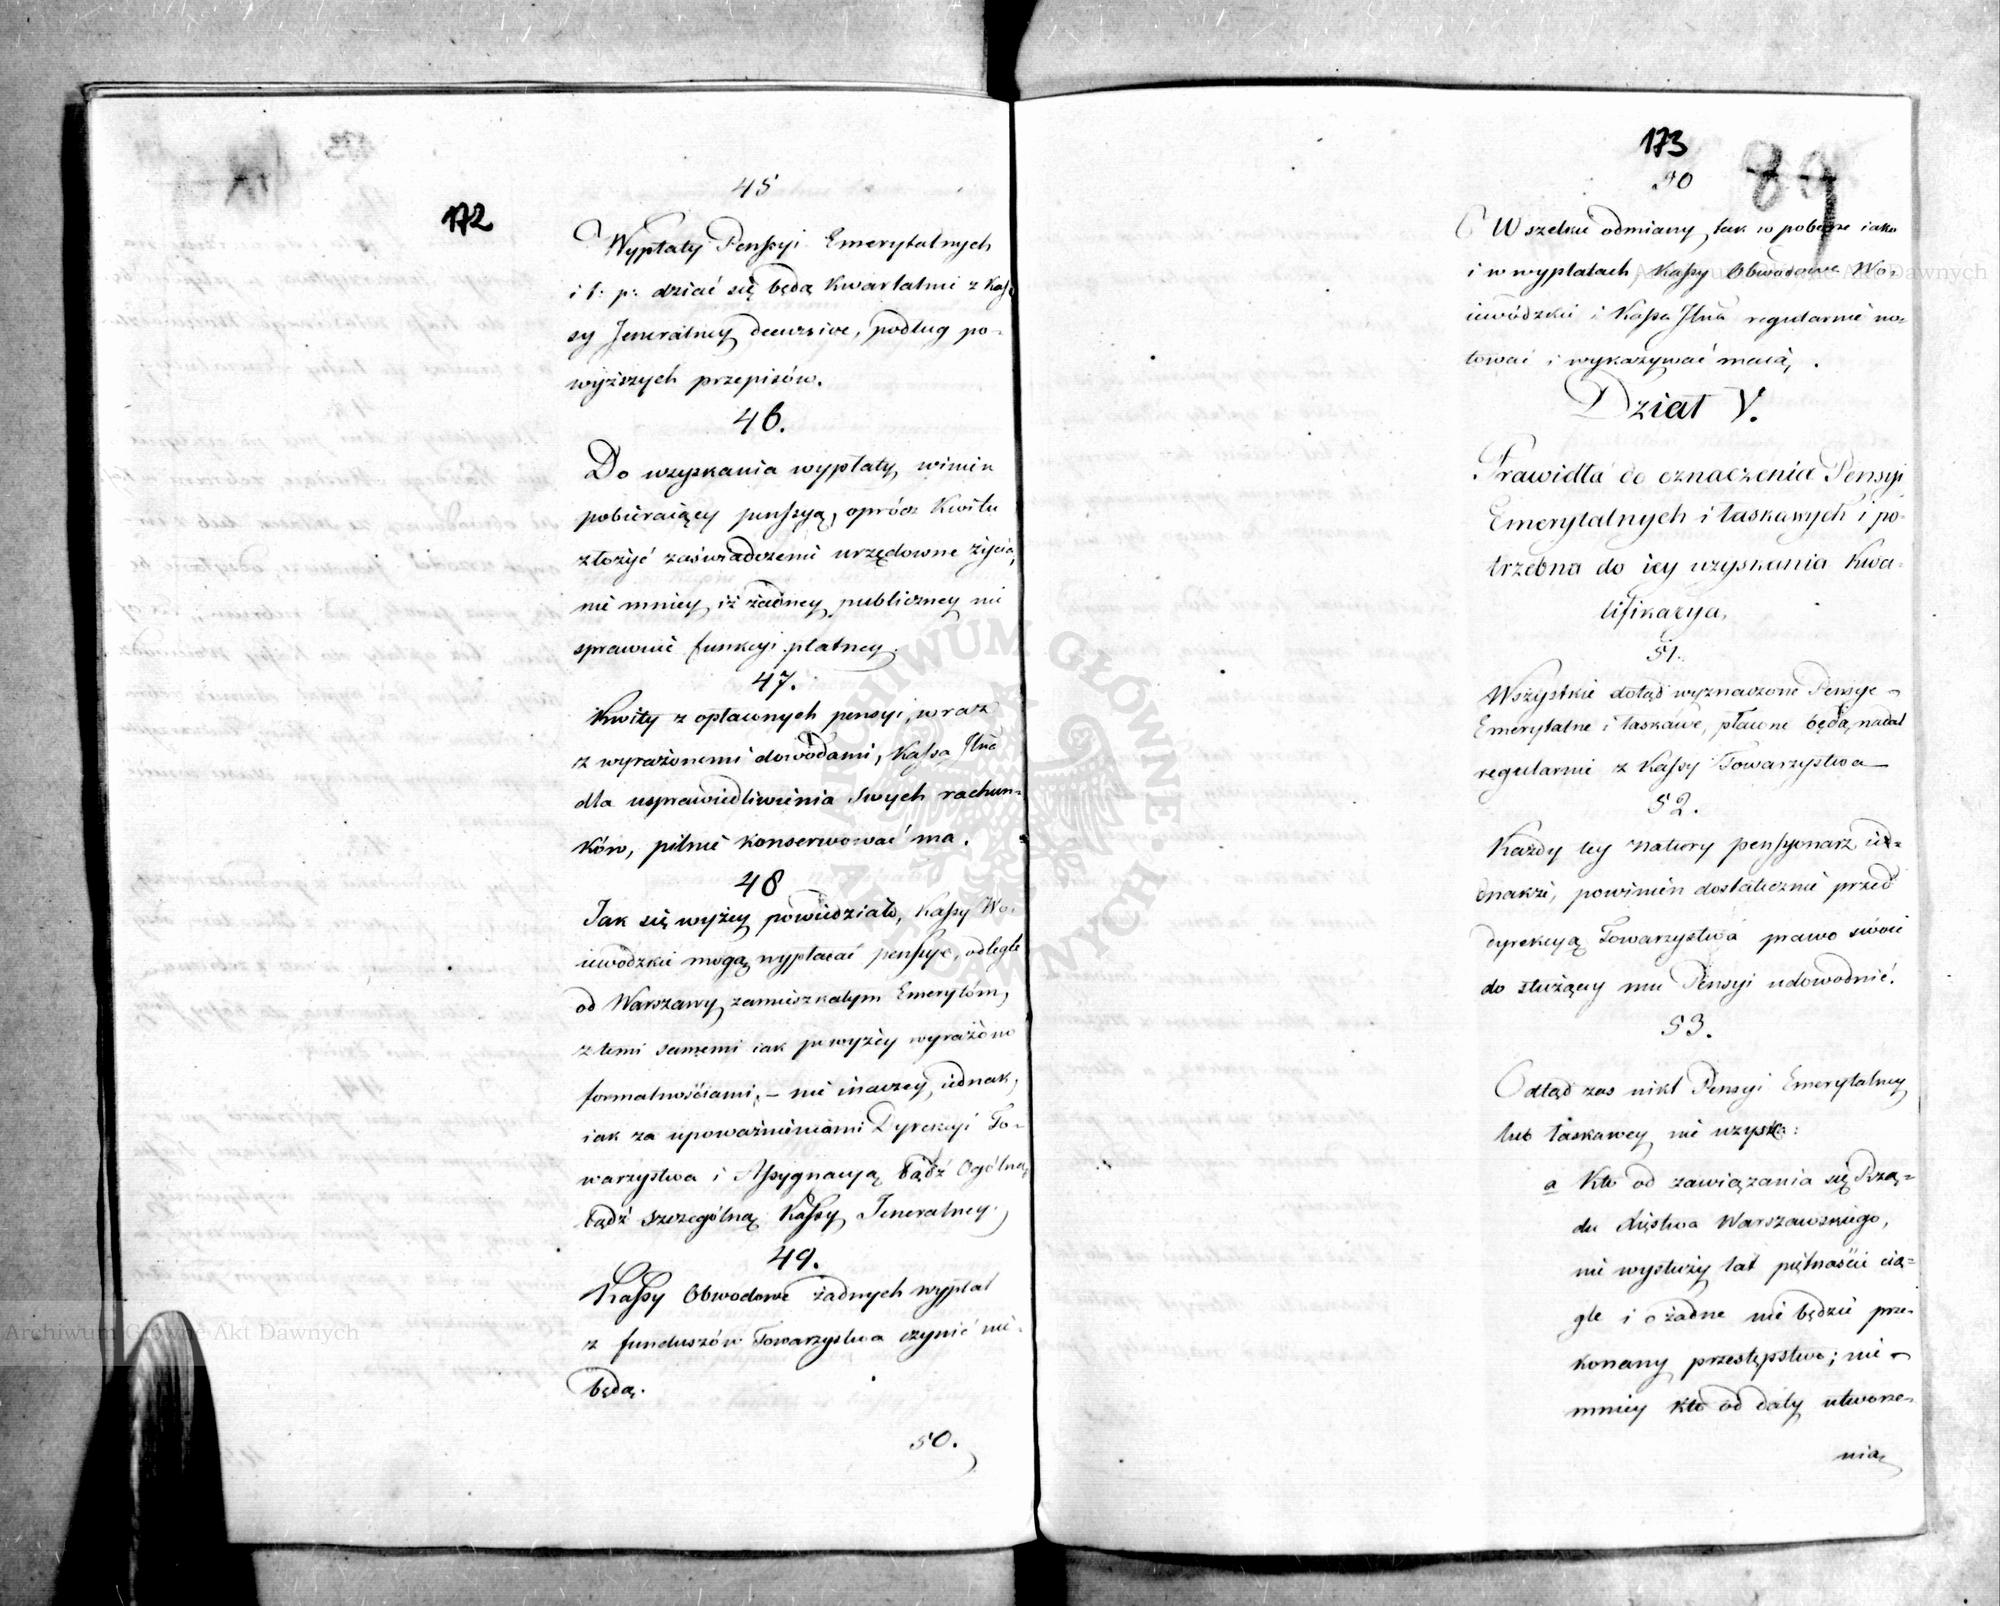 172
45
Wypłaty Penssyi Emerytalnych
i t: p: dziać się będą kwartalnie z Kas-
sy Jeneralney decursive, podług po-
wyższych przepisów.
46.
Do uzyskania wypłaty, winien
pobieraiący penssyą, oprócz kwitu
złożyć zaświadczenie urzędowne życia,
nie mniey, iż żadney publiczney nie
sprawuie funkcyi płatney.
47.
Kwity z opłaconych pensyi, wraz
z wyrażonemi dowodami, Kassa Jlna
dla usprawiedliwienia swych rachun-
ków, pilnie konserwować ma.
48
Jak się wyżey powiedziało, Kassy Wo-
iewodzkie mogą wypłacać penssye, odlegle
od Warszawy zamieszkałym Emerytóm,
z temi samemi iak powyżey wyrażono
formalnościami, – nie inaczey, iednak,
iak za upoważnieniami Dyrekcyi To-
warzystwa i Assygnacyą bądź Ogólną,
bądź szczególną Kassy Jeneralney.
49.
Kassy Obwodowe żadnych wypłat
z funduszów Towarzystwa czynić nie
będą.
50.
173
50
89
Wszelkie odmiany, tak w poborze iako
i w wypłatach, Kassy Obwodowe Wo-
iewódzkie i Kassa Jlna regularnie no-
tować i wykazywać maią.
Dział V.
Prawidła do oznaczenia Pensyi
Emerytalnych i łaskawych i po-
trzebna do iey uzyskania Kwa-
lifikacya,
51.
Wszystkie dotąd wyznaczone Pensye
Emerytalne i łaskawe, płacone będą, nadal
regularnie z Kassy Towarzystwa
52.
Każdy tey natury penssyonarz ied-
nakże, powinien dostatecznie przed
dyrekcyą Towarzystwa prawo swoie
do służącey mu Pensyi udowodnić.
53.
Odtąd zas nikt Pensyi Emerytalney
lub łaskawey nie uzyska:
a Kto od zawiązania się Rzą-
du Xięstwa Warszawskiego,
nie wysłuży lat piętnaście cią-
gle i o żadne nie będzie prze-
konany przestępstwo; nie-
mniey kto od daty utworze-
nia
Archiwum Główne Akt Dawnych
Archiwum Główne Akt Dawnych
ARCHIWUM GŁÓWNE AKT DAWNYCH